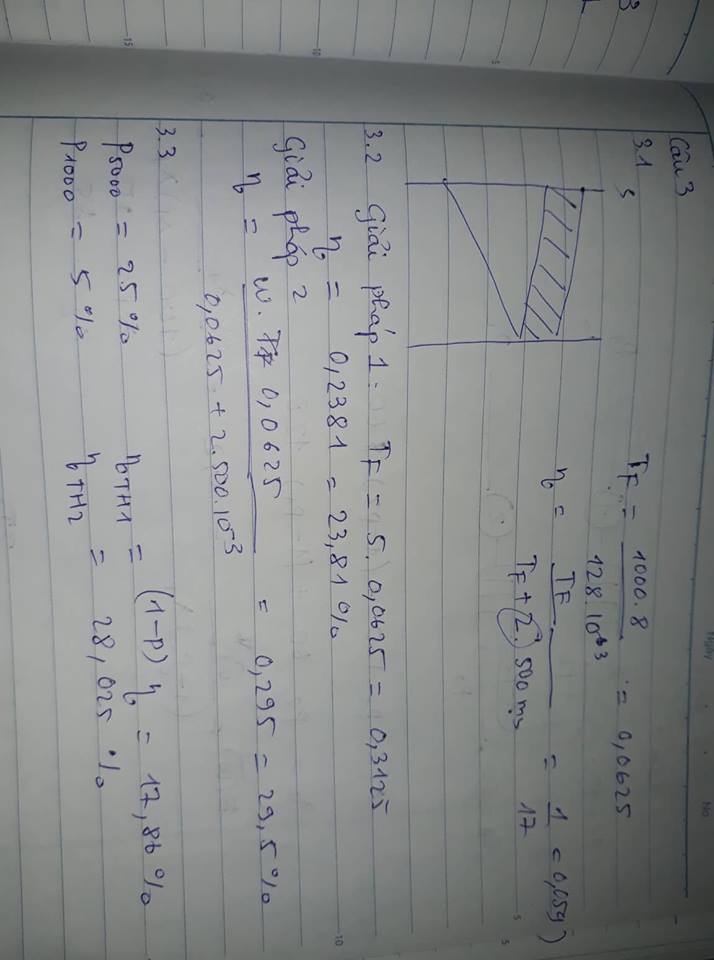 Ngày No
Câu 3
3.1
S
T_F = 1000.8 / 128.10^3 = 0,0625
η = T_F / (T_F + 2. 500 ms) = 1/17 = 0,059
3.2 Giải pháp 1: T_F = 5. 0,0625 = 0,3125
η = 0,2381 = 23,81 %
Giải pháp 2
η = w. 0,0625 / (0,0625 + 2.500.10^-3) = 0,295 = 29,5 %
3.3
P5000 = 25 % η_TH1 = (1-P) η = 17,86 %
P1000 = 5 % η_TH2 = 28,025 %